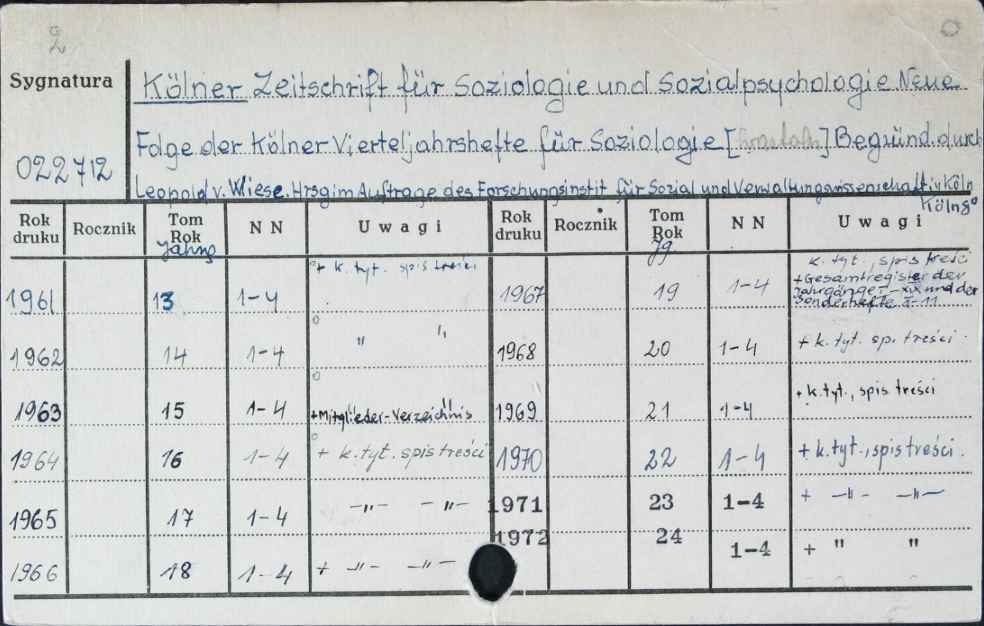 2
Sygnatura
022712
Kölner Zeitschrift für Soziologie und Sozialpsychologie Neue
Folge der Kölner Vierteljahrshefte für Soziologie [ ] Begründ. durch
Leopold v. Wiese. Hrsg im Auftrage des Forschungsinstit für Sozial und Verwaltungswissenschaft. in Köln
Köln
Rok druku Rocznik Tom Rok N N Uwagi Rok druku Rocznik Tom Rok N N Uwagi
Jahrg Jg
1961 13 1-4 + k. tyt. spis treści
1962 14 1-4 " "
1963 15 1-4 " +Mitglieder-Verzeichnis
1964 16 1-4 + k. tyt. spis treści
1965 17 1-4 -"- -"-
1966 18 1-4 + -"- -"-
1967 19 1-4 k. tyt., spis treści
+Gesamtregister der
Jahrgänge I-XIX und der
Sonderhefte I-11
1968 20 1-4 + k. tyt. sp. treści
1969 21 1-4 + k. tyt., spis treści
1970 22 1-4 + k. tyt., spis treści.
1971 23 1-4 + -"- -"-
1972 24 1-4 + " "